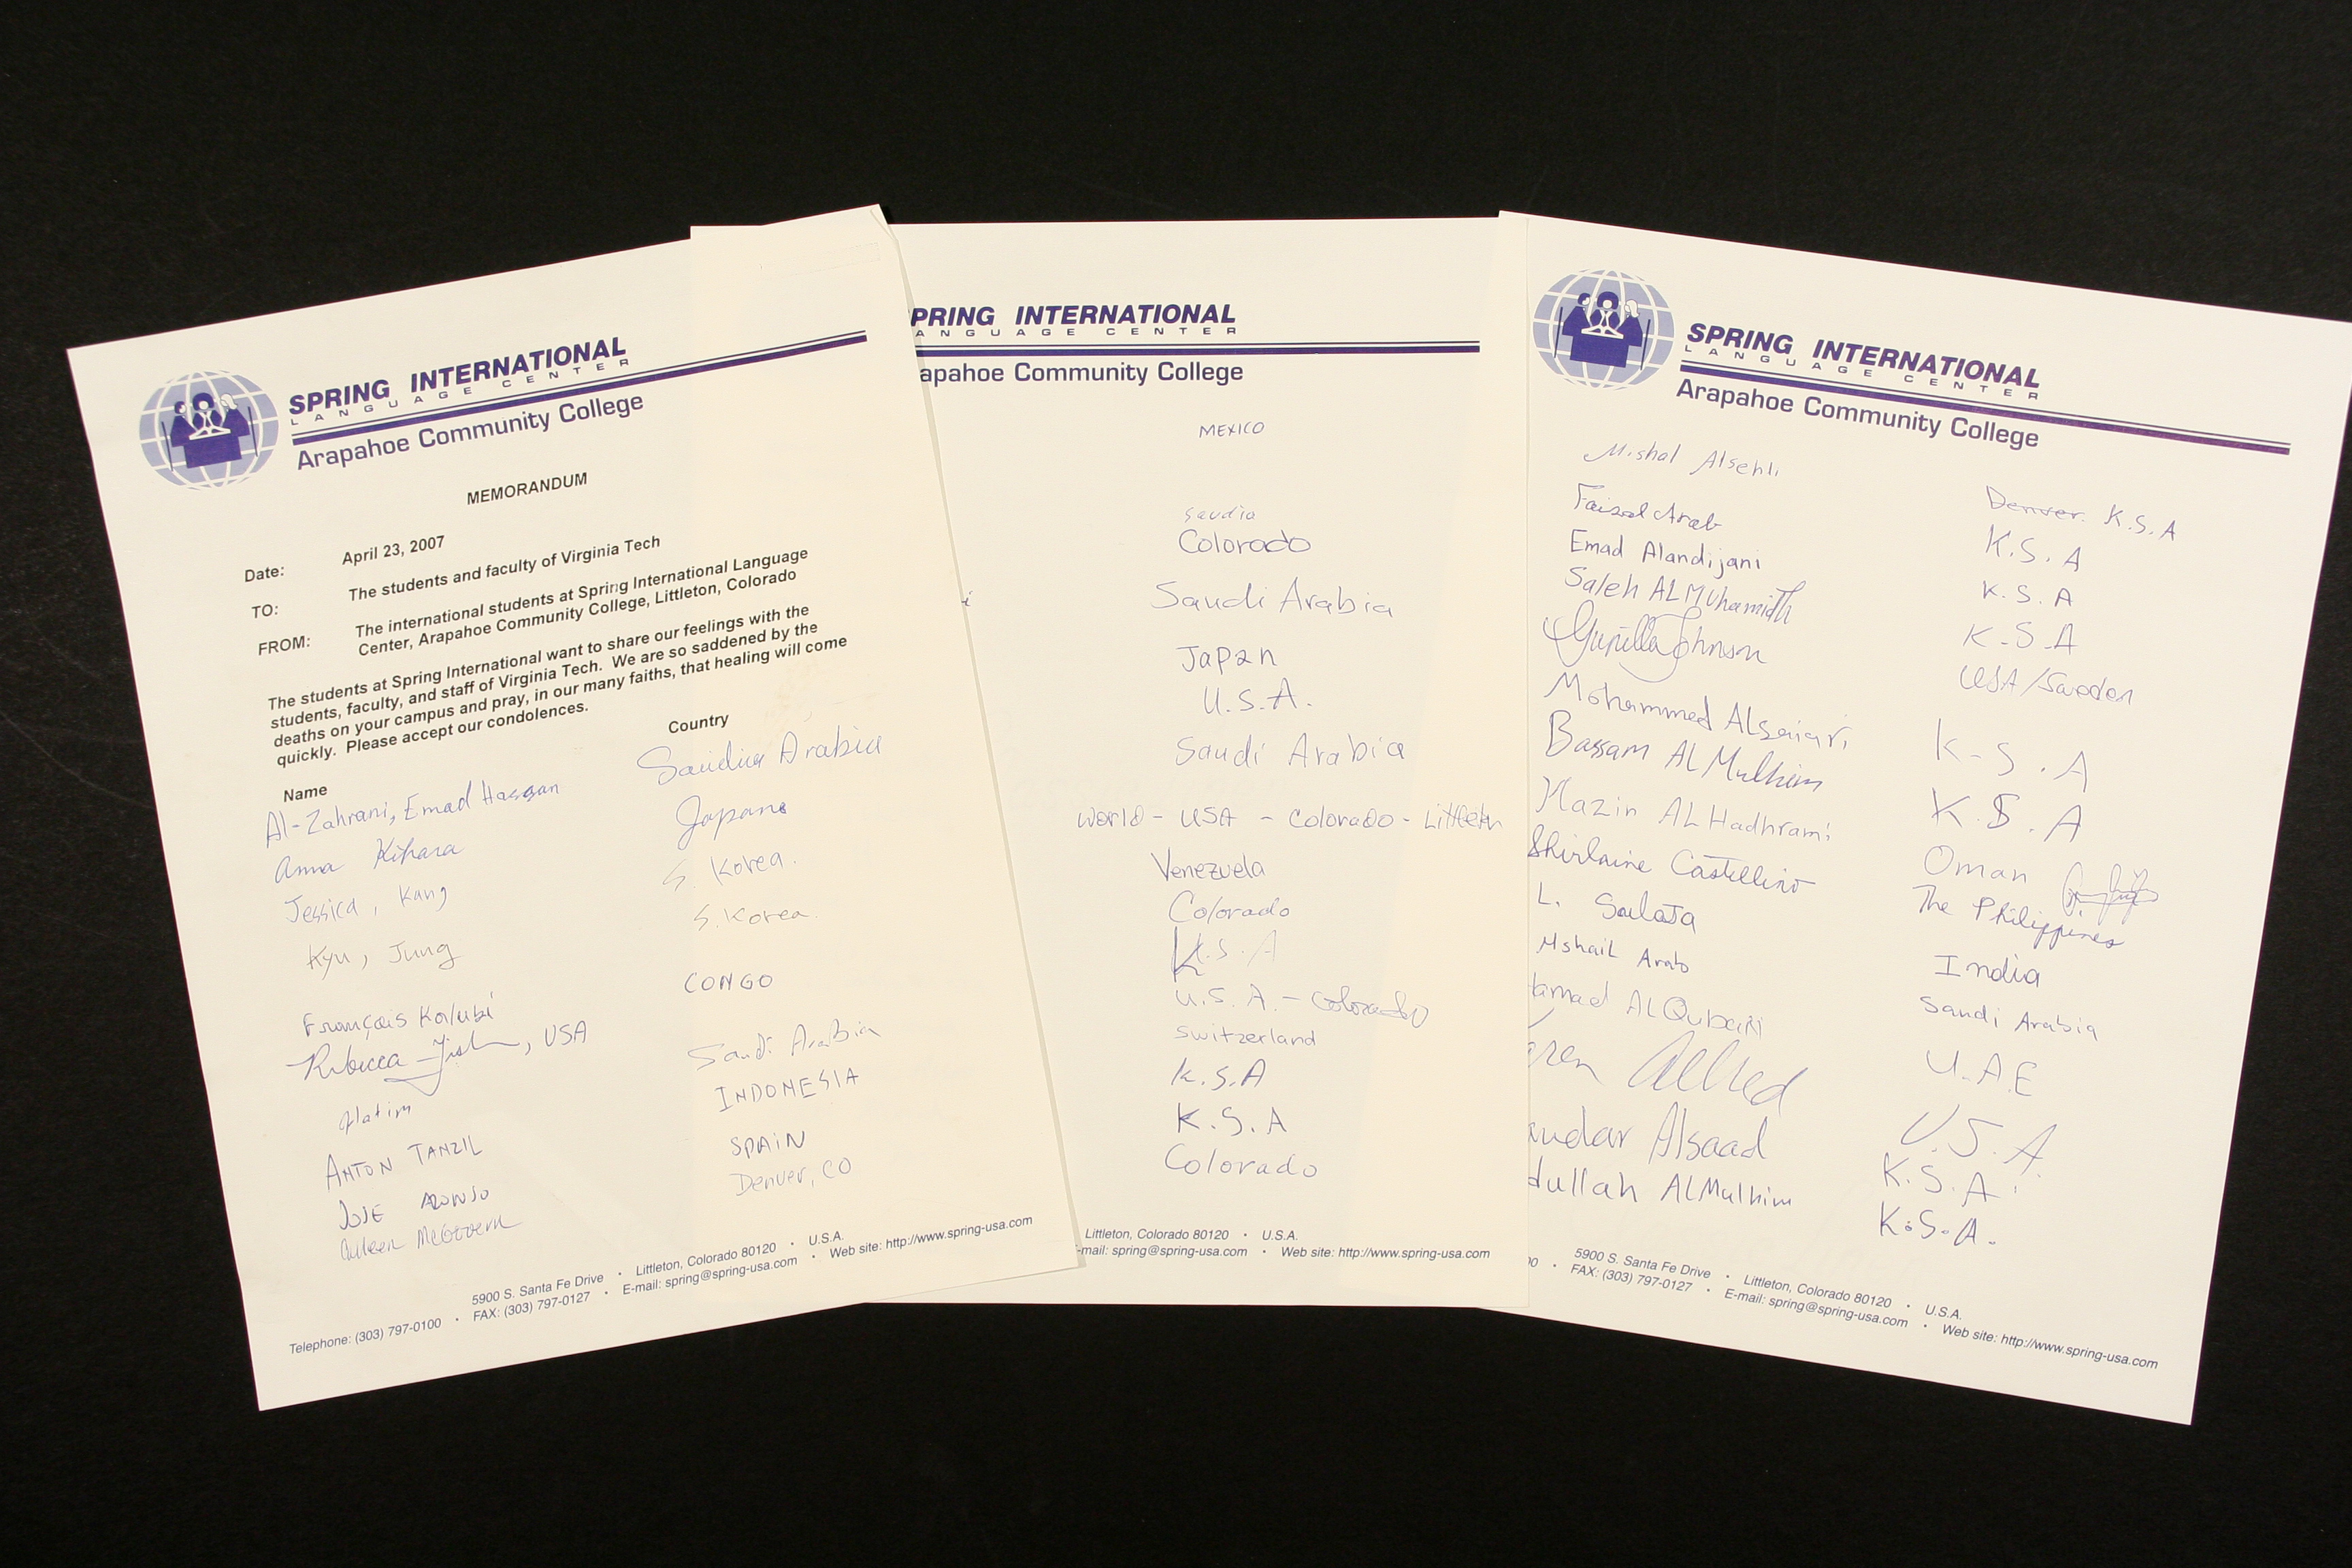 SPRING INTERNATIONAL
LANGUAGE CENTER
Arapahoe Community College
MEMORANDUM
Date: April 23, 2007
TO: The students and faculty of Virginia Tech
FROM: The international students at Spring International Language
Center, Arapahoe Community College, Littleton, Colorado
The students at Spring International want to share our feelings with the
students, faculty, and staff of Virginia Tech. We are so saddened by the
deaths on your campus and pray, in our many faiths, that healing will come
quickly. Please accept our condolences.
Name Country
Al-Zahrani, Emad Hassan Saudia Arabia
Anna Kihara Japan
Jessica, Kang S. Korea.
Kyu, Jung S. Korea.
François Kalubi CONGO
Rebecca, USA
Hatim Saudi Arabia
ANTON TANZIL INDONESIA
JOSE ALONSO SPAIN
McGovern Denver, CO
5900 S. Santa Fe Drive • Littleton, Colorado 80120 • U.S.A.
Telephone: (303) 797-0100 • FAX: (303) 797-0127 • E-mail: spring@spring-usa.com • Web site: http://www.spring-usa.com
PRING INTERNATIONAL
ANGUAGE CENTER
apahoe Community College
MEXICO
Saudia
Colorado
i Saudi Arabia
Japan
U.S.A.
Saudi Arabia
World - USA - Colorado - Littleton
Venezuela
Colorado
K.S.A
U.S.A. - Colorado
Switzerland
K.S.A
K.S.A
Colorado
Littleton, Colorado 80120 • U.S.A.
-mail: spring@spring-usa.com • Web site: http://www.spring-usa.com
SPRING INTERNATIONAL
LANGUAGE CENTER
Arapahoe Community College
Mishal Alsehli Denver. K.S.A
Faisal Arab K.S.A
Emad Alandijani K.S.A
Saleh ALMUhamidh K-S-A
Gunilla Johnson USA/Sweden
Mohammed Alsaiari K-S.A
Bassam ALMulhim K.S.A
Mazin ALHadhrami Oman
Shirlaine Castellino The Philippines
L. Salata India
Mshail Arab Saudi Arabia
amad ALQubaisi U.A.E
ren Allred U.S.A.
andar Alsaad K.S.A
dullah ALMulhim K.S.A.
5900 S. Santa Fe Drive • Littleton, Colorado 80120 • U.S.A.
00 • FAX: (303) 797-0127 • E-mail: spring@spring-usa.com • Web site: http://www.spring-usa.com